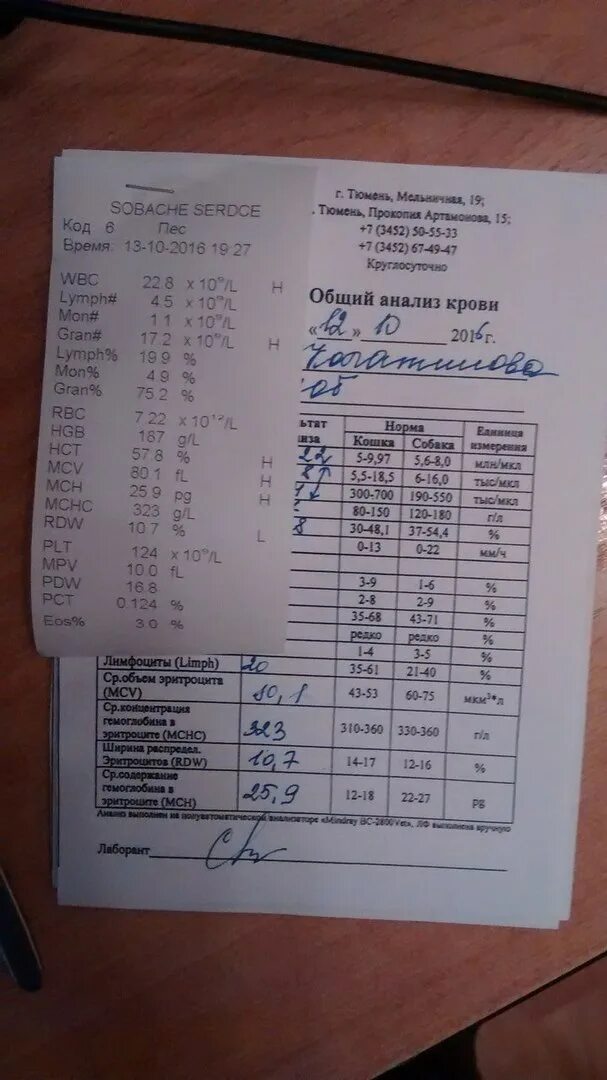 SOBACHE SERDCE
Код 6 Пес
Время: 13-10-2016 19:27
WBC 22.8 x 10⁹/L H
Lymph# 4.5 x 10⁹/L
Mon# 1.1 x 10⁹/L
Gran# 17.2 x 10⁹/L H
Lymph% 19.9 %
Mon% 4.9 %
Gran% 75.2 %
RBC 7.22 x 10¹²/L
HGB 187 g/L
HCT 57.8 % H
MCV 80.1 fL H
MCH 25.9 pg H
MCHC 323 g/L
RDW 10.7 % L
PLT 124 x 10⁹/L
MPV 10.0 fL
PDW 16.8
PCT 0.124 %
Eos% 3.0 %
г. Тюмень, Мельничная, 19;
. Тюмень, Прокопия Артамонова, 15;
+7 (3452) 50-55-33
+7 (3452) 67-49-47
Круглосуточно
Общий анализ крови
«12» 10 2016г.
Норма Единица
Кошка Собака измерения
22 5-9,97 5,6-8,0 млн/мкл
8↑ 5,5-18,5 6-16,0 тыс/мкл
↓ 300-700 190-550 тыс/мкл
80-150 120-180 г/л
8 30-48,1 37-54,4 %
0-13 0-22 мм/ч
3-9 1-6 %
2-8 2-9 %
35-68 43-71 %
редко редко %
1-4 3-5 %
Лимфоциты (Limph) 20 35-61 21-40 %
Ср.объем эритроцита
(MCV) 80,1 43-53 60-75 мкм³*л
Ср.концентрация
гемоглобина в
эритроците (MCHC) 323 310-360 330-360 г/л
Ширина распредел.
Эритроцитов (RDW) 10,7 14-17 12-16 %
Ср.содержание
гемоглобина в
эритроците (MCH) 25,9 12-18 22-27 pg
Анализ выполнен на полуавтоматическом анализаторе «Mindray BC-2800Vet», ЛФ выполнена вручную
Лаборант